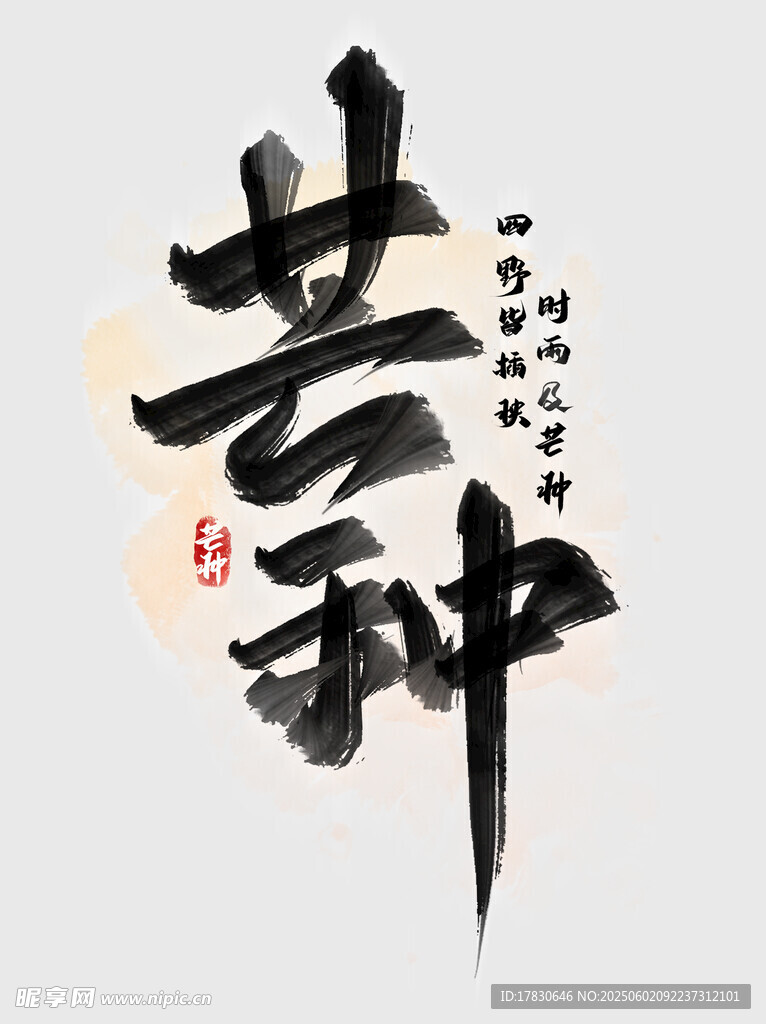 芒种
时雨及芒种
四野皆插秧
芒种
昵享网 www.nipic.cn
ID:17830646 NO:20250602092237312101